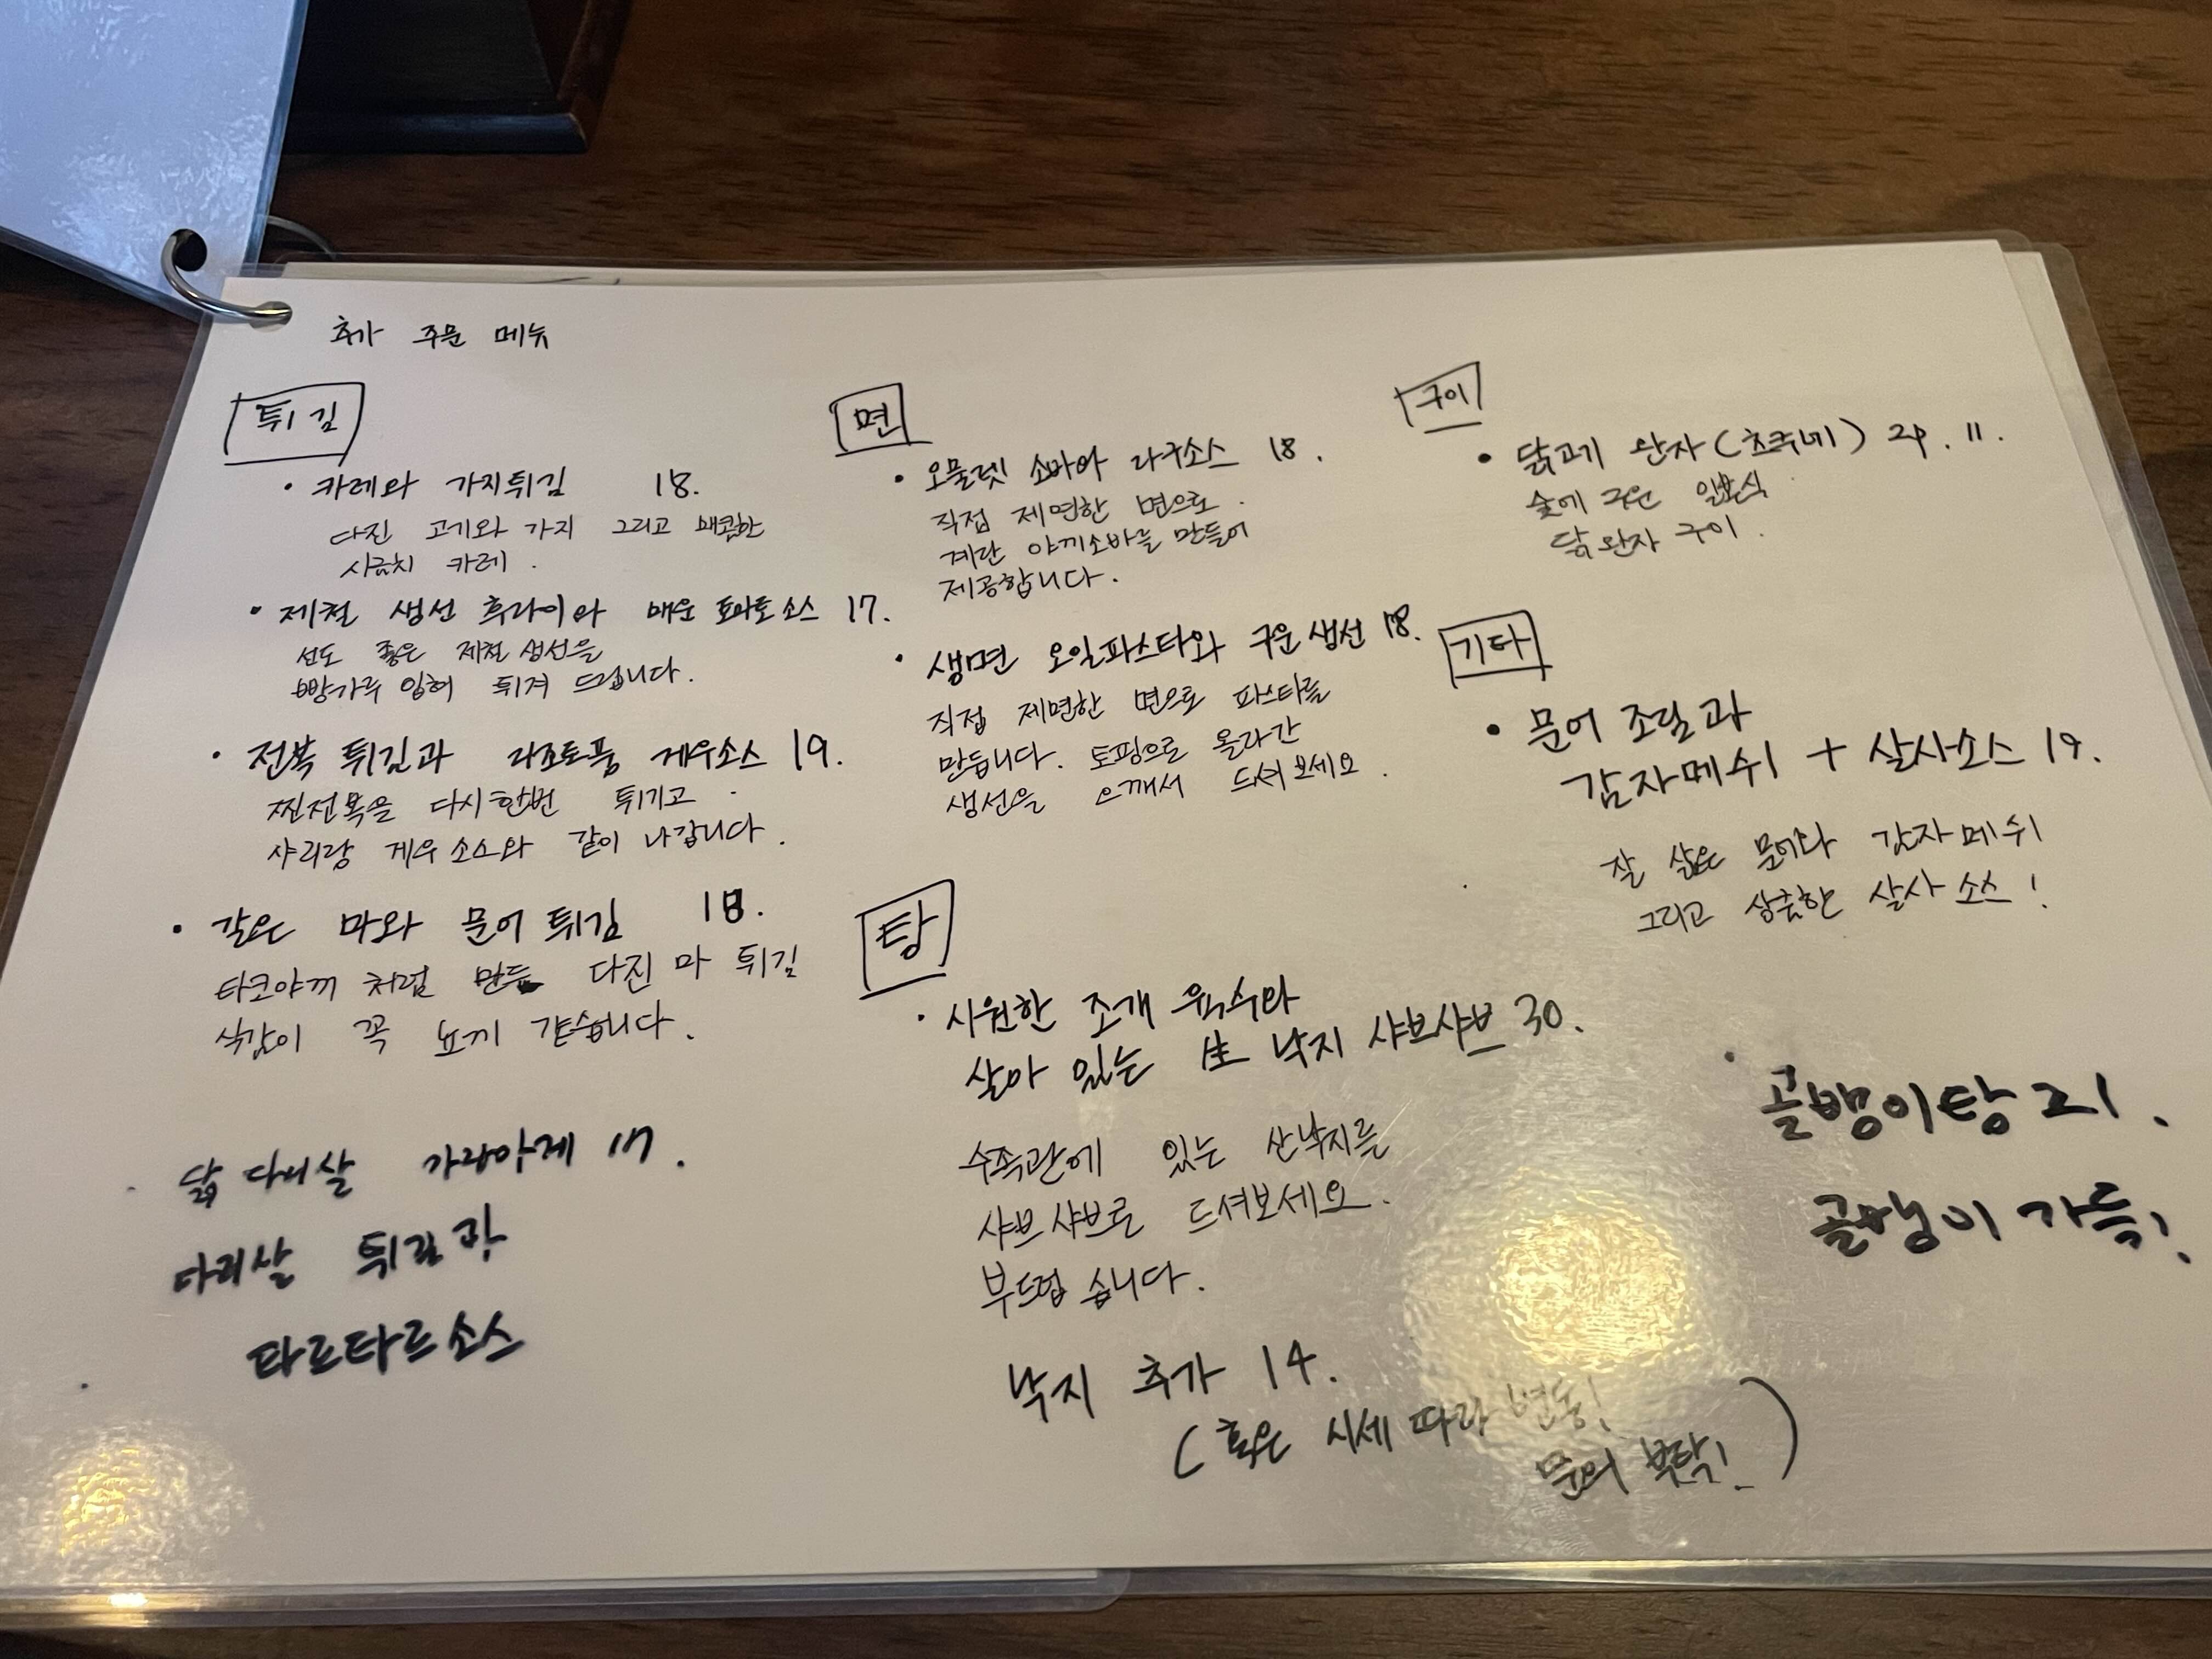 추가 주문 메뉴
튀김
• 카레와 가지튀김 18.
다진 고기와 가지 그리고 매콤한
시금치 카레.
• 제철 생선 후라이와 매운 토마토소스 17.
선도 좋은 제철생선을
빵가루 입혀 튀겨 드립니다.
• 전복 튀김과 리조또풍 게우소스 19.
찐전복을 다시한번 튀기고
샤리랑 게우소스와 같이 나갑니다.
• 갈은 마와 문어튀김 18.
타코야끼 처럼 만든 다진 마 튀김
식감이 꼭 뇨끼 같습니다.
• 닭다리살 가라아게 17.
다리살 튀김과
타르타르소스
면
• 오믈렛 소바와 라구소스 18.
직접 제면한 면으로
계란 야끼소바를 만들어
제공합니다.
• 생면 오일파스타와 구운생선 18.
직접 제면한 면으로 파스타를
만듭니다. 토핑으로 올라간
생선을 으깨서 드셔보세요.
탕
• 시원한 조개 육수와
살아 있는 生 낙지 샤브샤브 30.
수족관에 있는 산낙지를
샤브샤브로 드셔보세요.
부드럽습니다.
낙지 추가 14.
(혹은 시세 따라 변동!
문의 부탁!)
구이
• 닭고기 완자(츠쿠네) 2P. 11.
숯에 구운 일본식
닭완자 구이.
기타
• 문어 조림과
감자메쉬 + 살사소스 19.
잘 삶은 문어와 감자메쉬
그리고 상큼한 살사소스!
• 골뱅이탕 21.
골뱅이 가득!